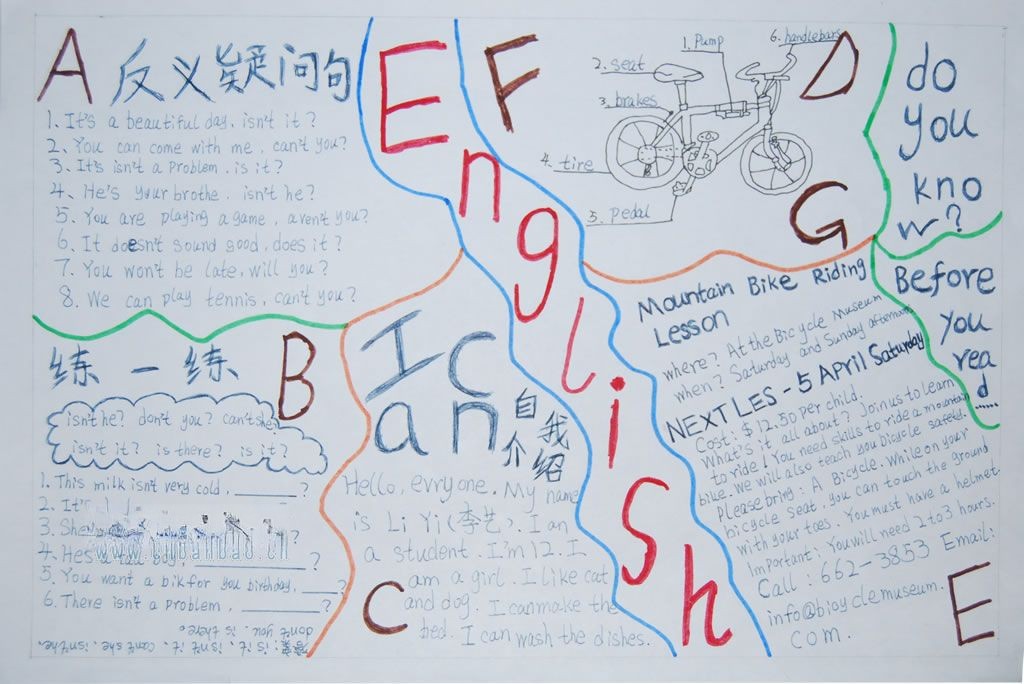 A 反义疑问句
1. It's a beautiful day, isn't it?
2. You can come with me, can't you?
3. It's isn't a problem, is it?
4. He's your brothe, isn't he?
5. You are playing a game, aren't you?
6. It doesn't sound good, does it?
7. You won't be late, will you?
8. We can play tennis, can't you?
练一练
B
isn't he? don't you? can't she
isn't it? is there? is it?
1. This milk isn't very cold, ______?
2. It's
3. She ?
4. He's a lazy boy, ______?
5. You want a bik for you birthday, ____?
6. There isn't a problem, ______?
答案: is it、isn't it、can't she、isn't he、
don't you、is there。
English
I can
自我介绍
Hello, evryone. My name
is Li Yi(李艺), I an
a student. I'm 12. I
am a girl. I like cat
and dog. I can make the
bed. I can wash the dishes.
C
F
1. Pump
6. handlebars
2. seat
3. brakes
4. tire
5. pedal
D
G
do
you
kno
w?
Before
you
rea
d......
Mountain Bike Riding
Lesson
where? At the Bicycle Museum
when? Saturday and Sunday afternoon
NEXT LES - 5 April Saturday
Cost: $12.50 per child.
What's it all about? Join us to learn
to ride! You need skills to ride a mountain
bike. We will also teach you bicycle safety.
Please bring: A Bicycle. While on your
bicycle seat, you can touch the ground
with your toes. You must have a helmet.
Important: You will need 2 to 3 hours.
Call: 662-3853 Email:
info@bicyclemuseum.
com.
E